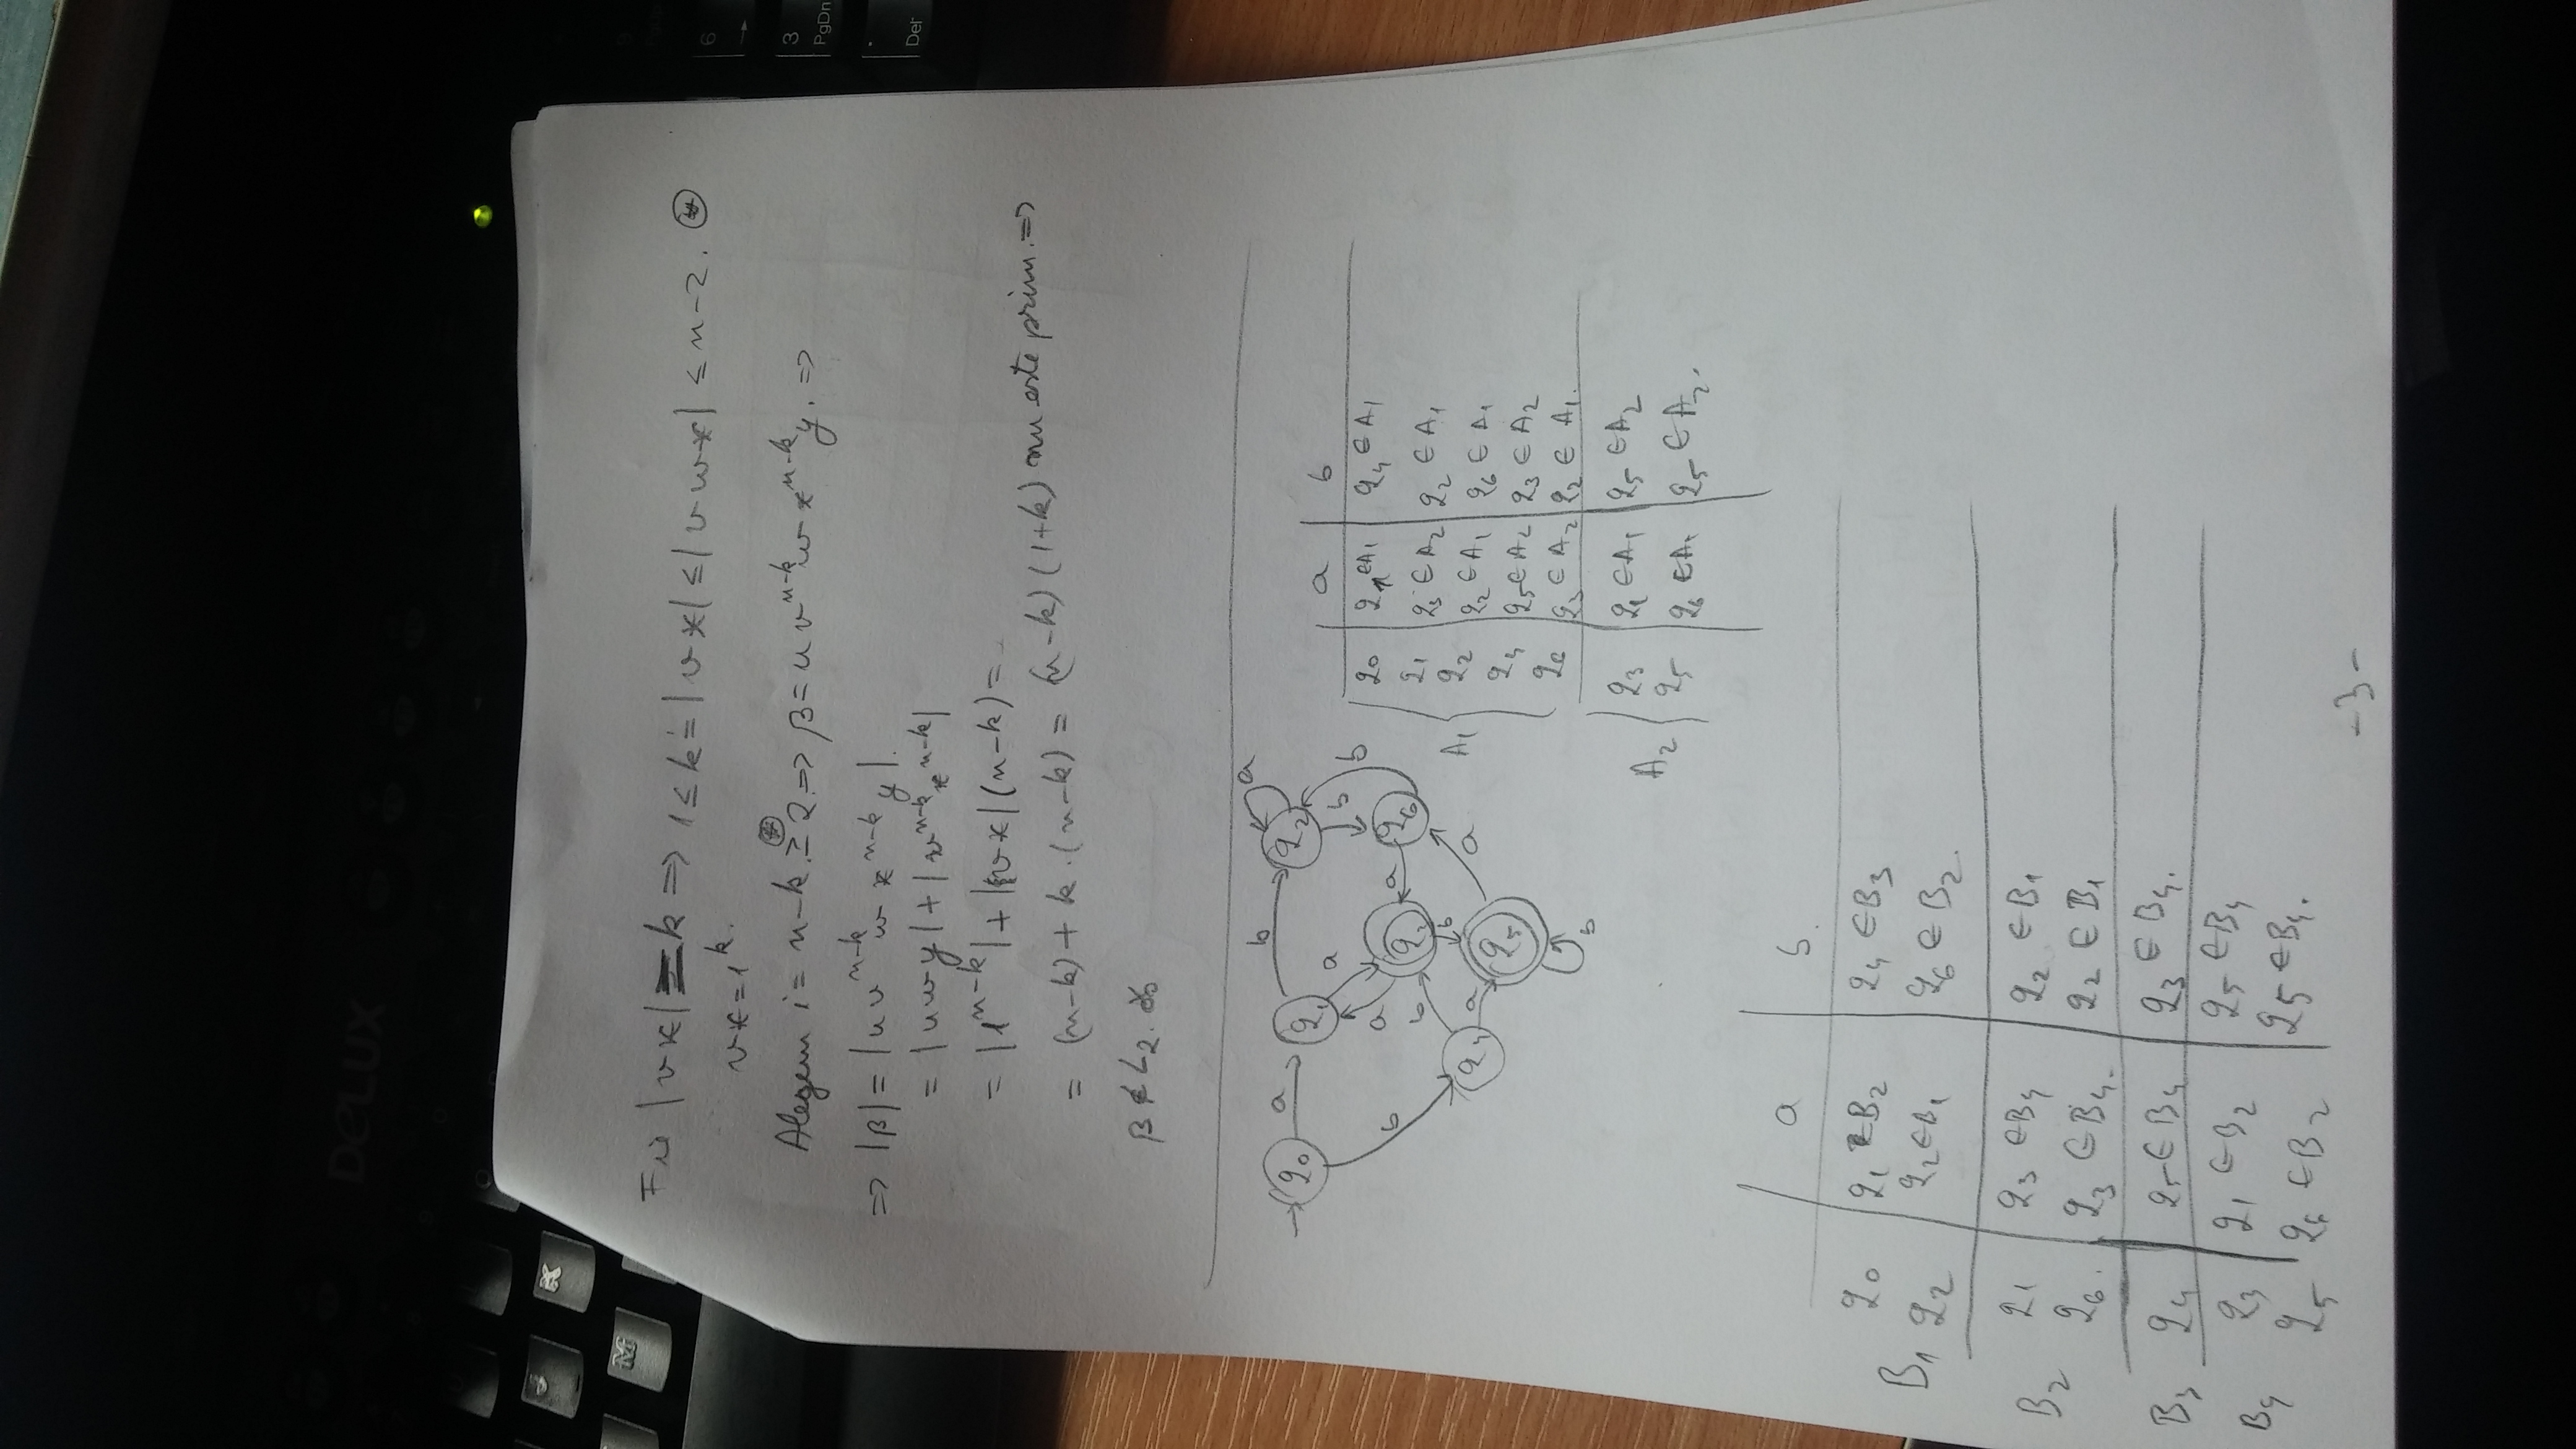 DELUX
J
K
M
6
→
3
PgDn
.
Del
Fie |vx| = k ⇒ 1 ≤ k = |vx| ≤ |vwx| ≤ n-2. (*)
vx = 1^k.
Alegem i = n-k ≥(*) 2 ⇒ β = u v^{n-k} w x^{n-k} y. ⇒
⇒ |β| = |u v^{n-k} w x^{n-k} y|.
= |uwy| + |v^{n-k} x^{n-k}|
= |1^{n-k}| + |vx|(n-k) =
= (n-k) + k·(n-k) = (n-k)(1+k) nu este prim. ⇒
β ∉ L₂.
q0 a q1 b q2 a
a a b b
b q3 a q6
b b
q4 a q5 a
b
a b
A₁
q0 q1 ∈ A₁ q4 ∈ A₁
q1 q3 ∈ A₂ q2 ∈ A₁
q2 q2 ∈ A₁ q6 ∈ A₁
q4 q5 ∈ A₂ q3 ∈ A₂
q6 q3 ∈ A₂ q2 ∈ A₁.
A₂
q3 q1 ∈ A₁ q5 ∈ A₂
q5 q6 ∈ A₁ q5 ∈ A₂.
a b.
B₁
q0 q1 ∈ B₂ q4 ∈ B₃
q2 q2 ∈ B₁ q6 ∈ B₂.
B₂
q1 q3 ∈ B₄ q2 ∈ B₁
q6. q3 ∈ B₄. q2 ∈ B₁
B₃ q4 q5 ∈ B₄ q3 ∈ B₄.
B₄
q3 q1 ∈ B₂ q5 ∈ B₄
q5 q6 ∈ B₂ q5 ∈ B₄.
-3-